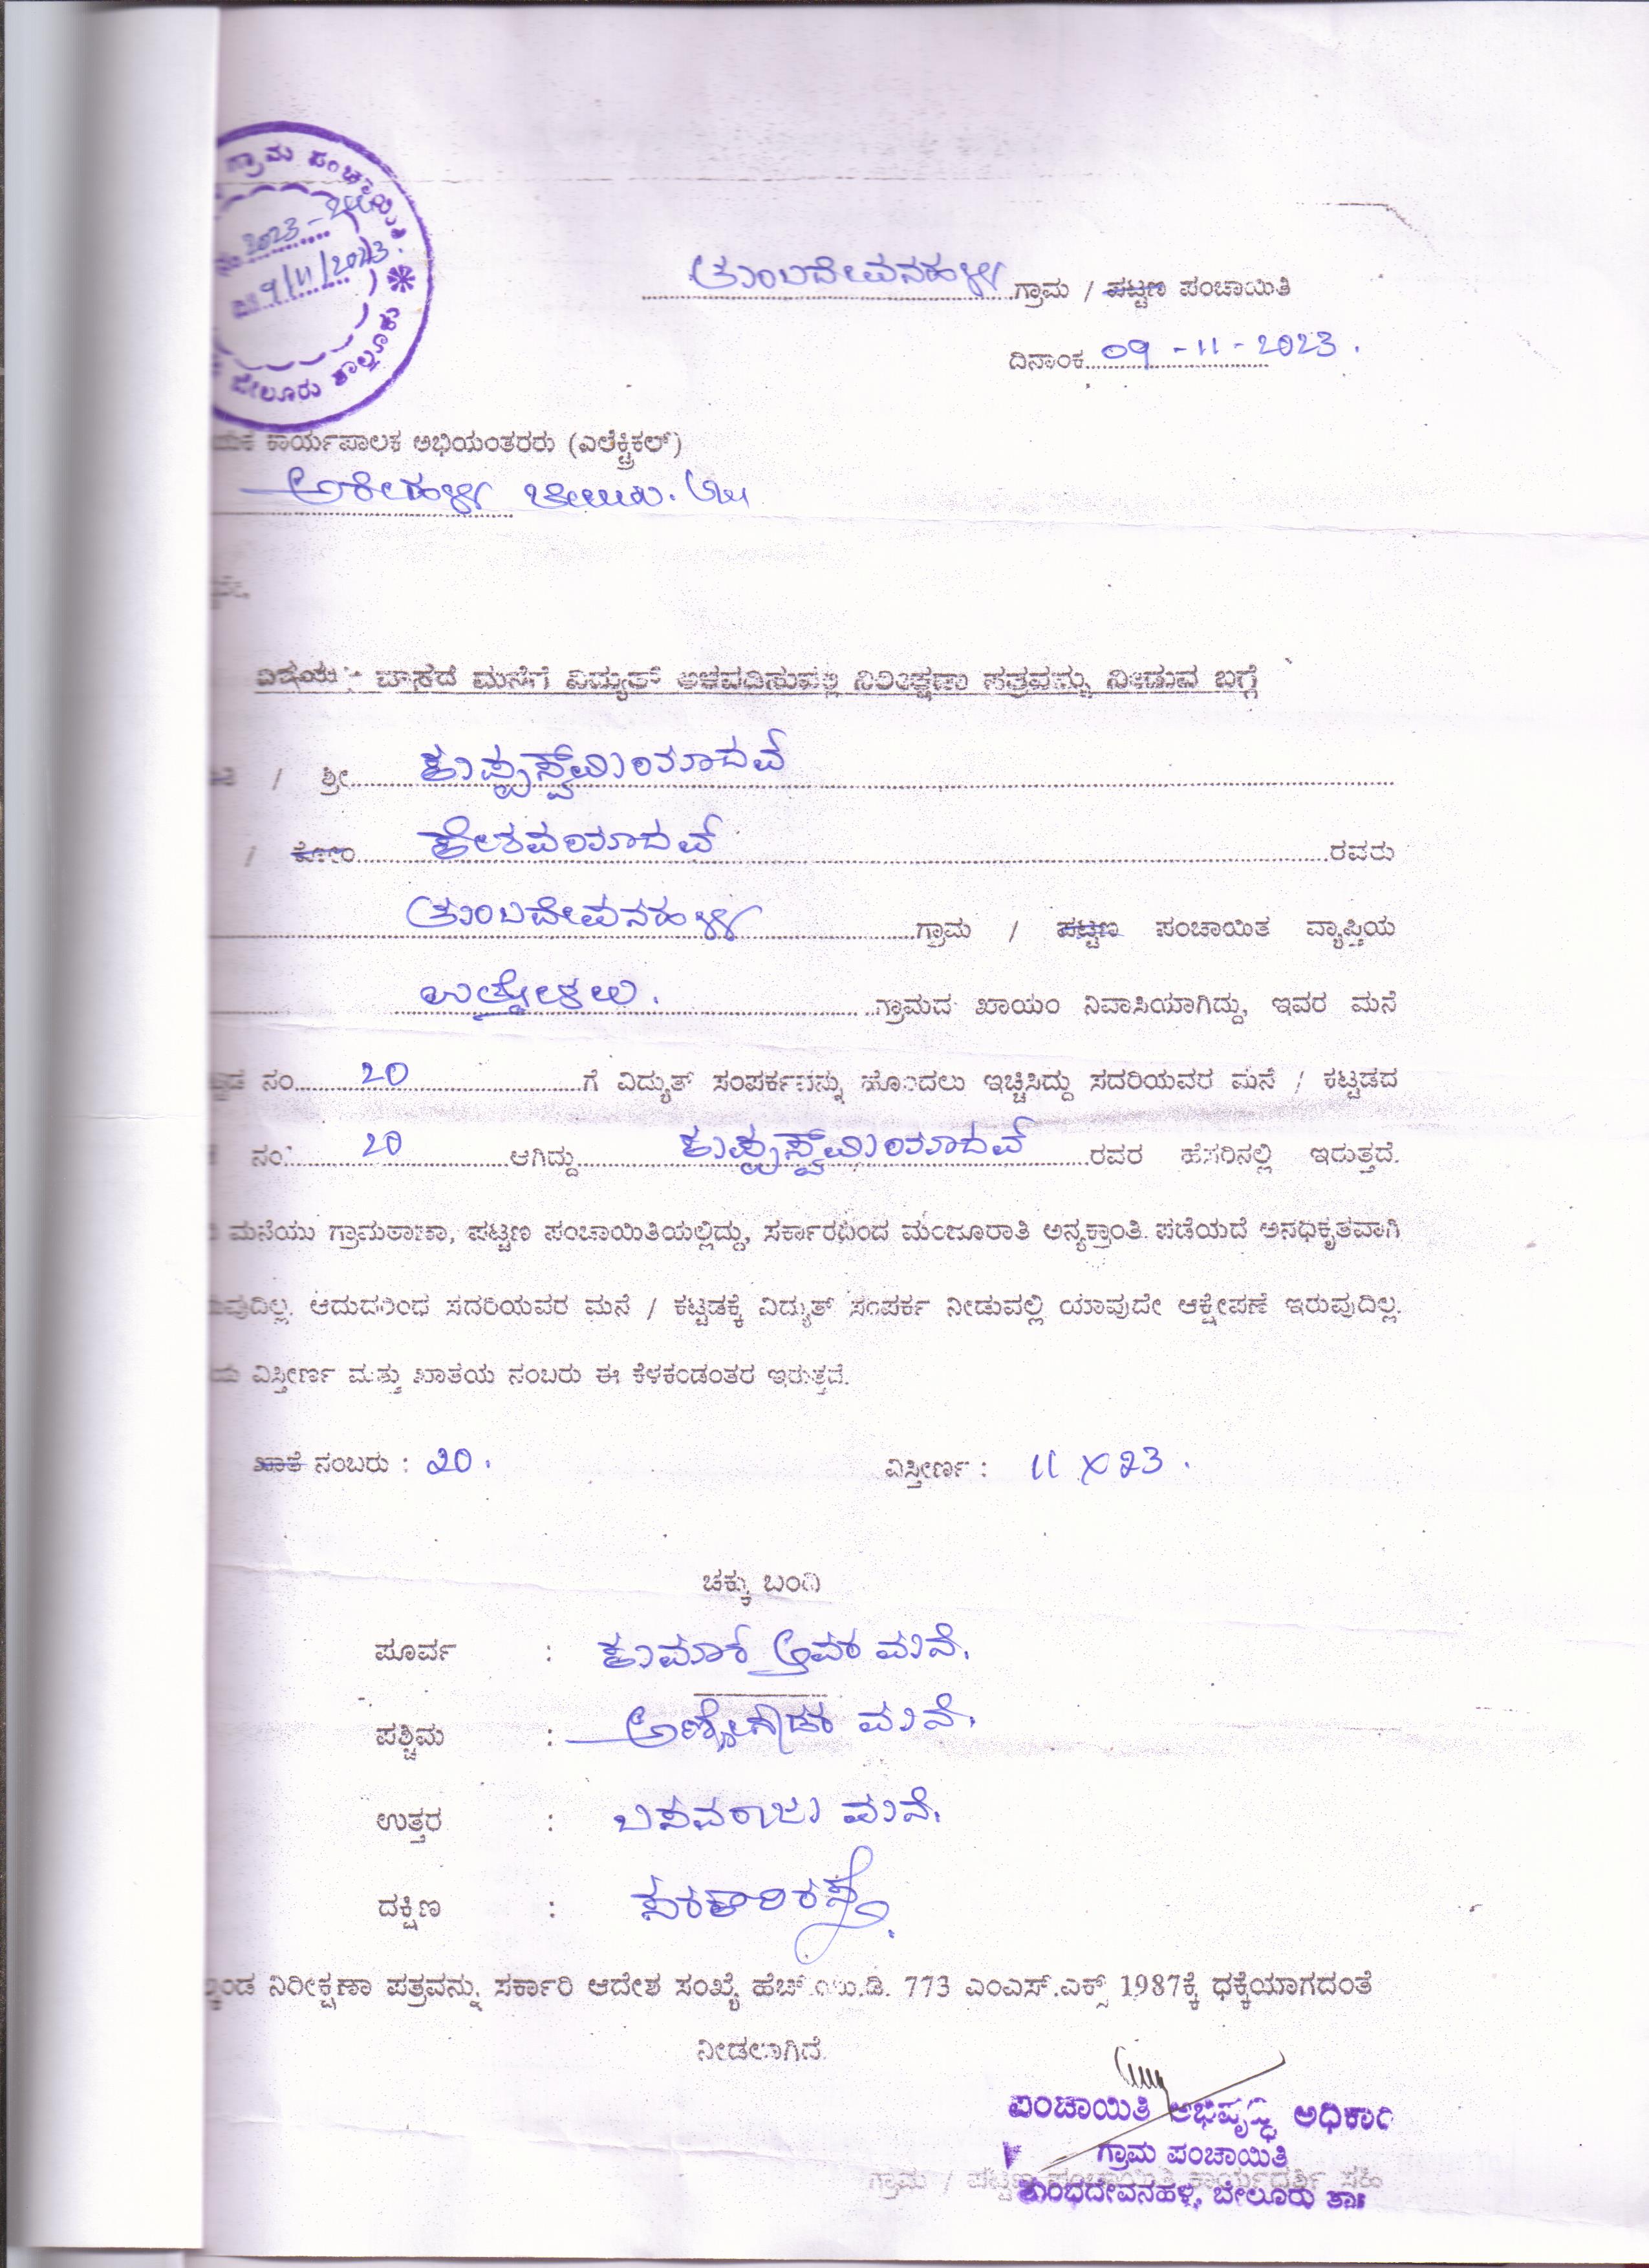 ಗ್ರಾಮ ಪಂಚಾಯಿತಿ
2023-24
9/11/2023
ಬೇಲೂರು ತಾಲ್ಲೂಕು
ತುಂಬದೇವನಹಳ್ಳಿ ಗ್ರಾಮ / ಪಟ್ಟಣ ಪಂಚಾಯಿತಿ
ದಿನಾಂಕ 09-11-2023.
ಕಾರ್ಯಪಾಲಕ ಅಭಿಯಂತರರು (ಎಲೆಕ್ಟ್ರಿಕಲ್)
ಅರೇಹಳ್ಳಿ ಬೇಲೂರು.
ವಿಷಯ :- ವಾಸದ ಮನೆಗೆ ವಿದ್ಯುತ್ ಅಳವಡಿಸುವಲ್ಲಿ ನಿರೀಕ್ಷಣಾ ಪತ್ರವನ್ನು ನೀಡುವ ಬಗ್ಗೆ
/ ಶ್ರೀ ಕುಪ್ಪುಸ್ವಾಮಿಯಾದವ್
/ ಕೋಂ ಕೇಶವಯಾದವ್ ರವರು
ತುಂಬದೇವನಹಳ್ಳಿ ಗ್ರಾಮ / ಪಟ್ಟಣ ಪಂಚಾಯಿತ ವ್ಯಾಪ್ತಿಯ
ಗ್ರಾಮದ ಖಾಯಂ ನಿವಾಸಿಯಾಗಿದ್ದು, ಇವರ ಮನೆ
ನಂ 20 ಗೆ ವಿದ್ಯುತ್ ಸಂಪರ್ಕವನ್ನು ಹೊಂದಲು ಇಚ್ಚಿಸಿದ್ದು ಸದರಿಯವರ ಮನೆ / ಕಟ್ಟಡದ
ನಂ 20 ಆಗಿದ್ದು ಕುಪ್ಪುಸ್ವಾಮಿಯಾದವ್ ರವರ ಹೆಸರಿನಲ್ಲಿ ಇರುತ್ತದೆ.
ಮನೆಯು ಗ್ರಾಮಠಾಣಾ, ಪಟ್ಟಣ ಪಂಚಾಯಿತಿಯಲ್ಲಿದ್ದು, ಸರ್ಕಾರದಿಂದ ಮಂಜೂರಾತಿ ಅನ್ಯಕ್ರಾಂತಿ ಪಡೆಯದೆ ಅನಧಿಕೃತವಾಗಿ
ಆದುದರಿಂಧ ಸದರಿಯವರ ಮನೆ / ಕಟ್ಟಡಕ್ಕೆ ವಿದ್ಯುತ್ ಸಂಪರ್ಕ ನೀಡುವಲ್ಲಿ ಯಾವುದೇ ಆಕ್ಷೇಪಣೆ ಇರುವುದಿಲ್ಲ.
ವಿಸ್ತೀರ್ಣ ಮತ್ತು ಖಾತೆಯ ನಂಬರು ಈ ಕೆಳಕಂಡಂತರ ಇರುತ್ತದೆ.
ಖಾತೆ ನಂಬರು : 20.
ವಿಸ್ತೀರ್ಣ : 11 X 23.
ಚಕ್ಕು ಬಂದಿ
ಪೂರ್ವ : ಕುಮಾರ್ ರವರ ಮನೆ.
ಪಶ್ಚಿಮ : ಅಣ್ಣೇಗೌಡರ ಮನೆ.
ಉತ್ತರ : ಬಸವರಾಜು ಮನೆ.
ದಕ್ಷಿಣ : ಸರಕಾರಿ ರಸ್ತೆ.
ನಿರೀಕ್ಷಣಾ ಪತ್ರವನ್ನು ಸರ್ಕಾರಿ ಆದೇಶ ಸಂಖ್ಯೆ ಹೆಚ್.ಯು.ಡಿ. 773 ಎಂಎಸ್.ಎಕ್ಸ್ 1987ಕ್ಕೆ ಧಕ್ಕೆಯಾಗದಂತೆ
ನೀಡಲಾಗಿದೆ.
ಪಂಚಾಯಿತಿ ಅಭಿವೃದ್ಧಿ ಅಧಿಕಾರಿ
ಗ್ರಾಮ ಪಂಚಾಯಿತಿ
ಗ್ರಾಮ / ಪಟ್ಟಣ ಪಂಚಾಯಿತಿ ಕಾರ್ಯದರ್ಶಿ ಸಹಿ
ತುಂಬದೇವನಹಳ್ಳಿ, ಬೇಲೂರು ತಾ॥